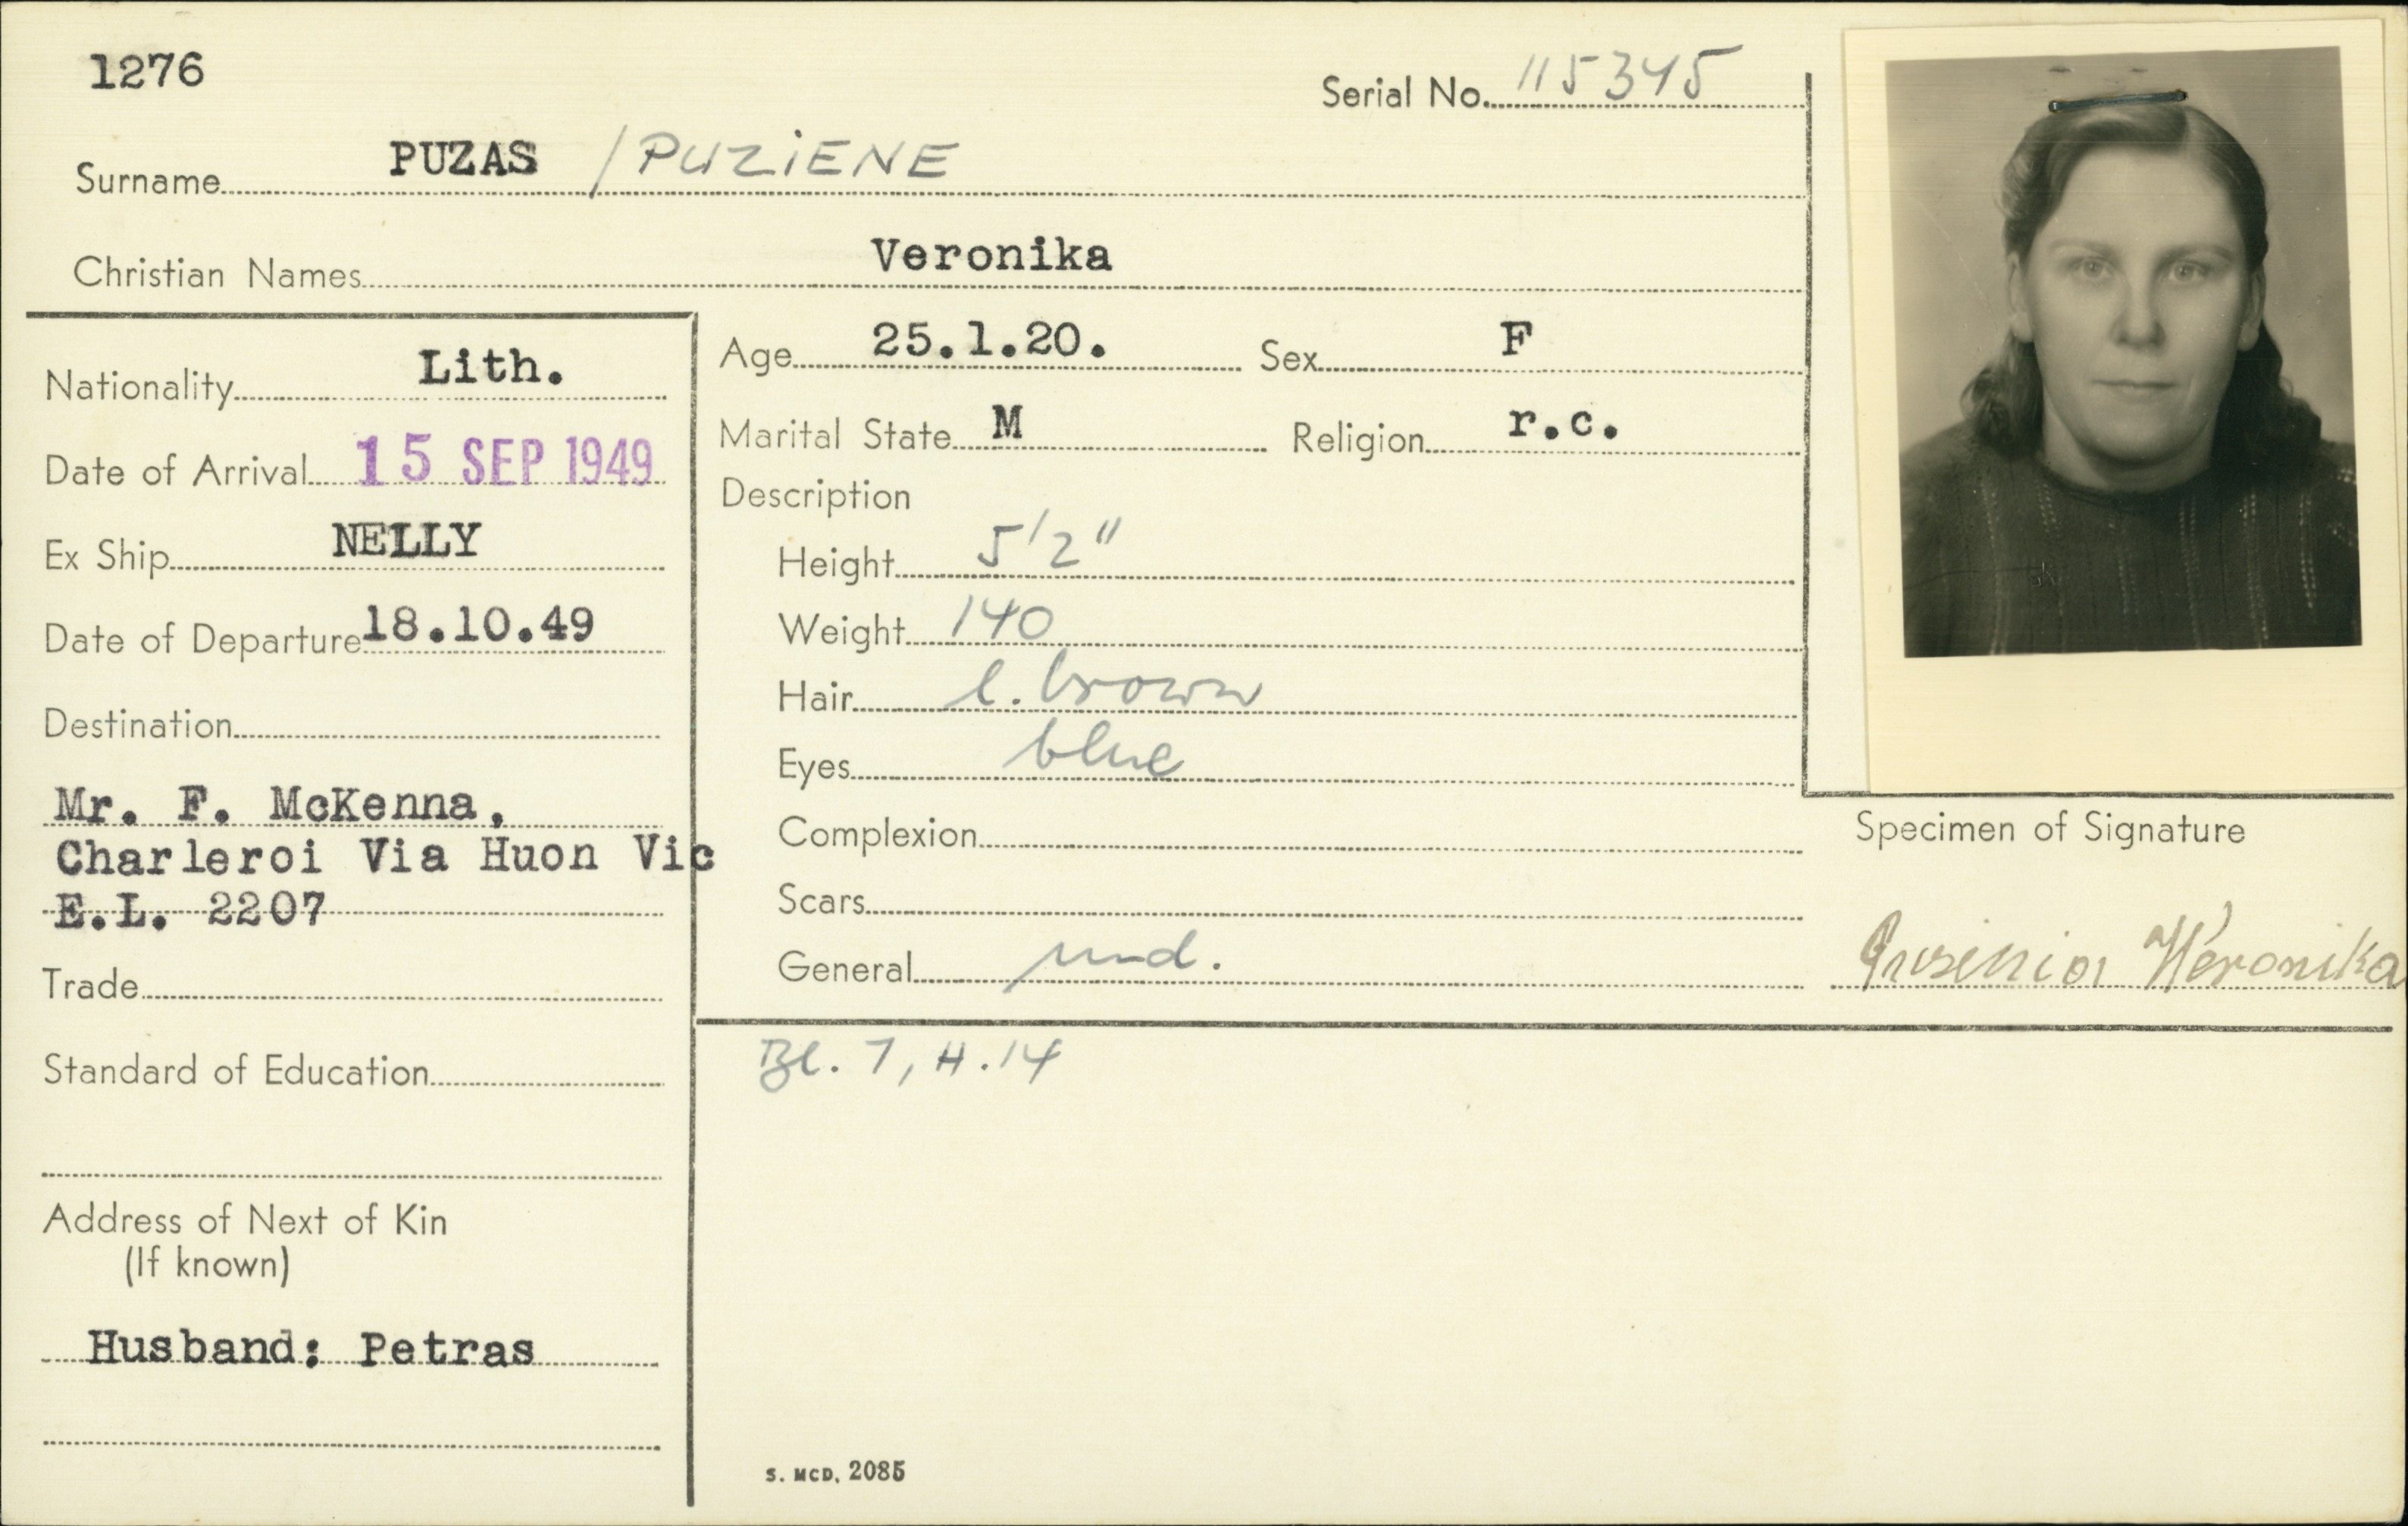 1276
Serial No. 115345
Surname PUZAS / PUZIENE
Christian Names Veronika
Nationality Lith.
Date of Arrival 15 SEP 1949
Ex Ship NELLY
Date of Departure 18.10.49
Destination
Mr. F. McKenna,
Charleroi Via Huon Vic
E.L. 2207
Trade
Standard of Education
Address of Next of Kin
(If known)
Husband: Petras
Age 25.1.20. Sex F
Marital State M Religion r.c.
Description
Height 5'2"
Weight 140
Hair l. brown
Eyes blue
Complexion
Scars
General
Specimen of Signature
Veronika
Bl. 7, H.14
S. MCD. 2085